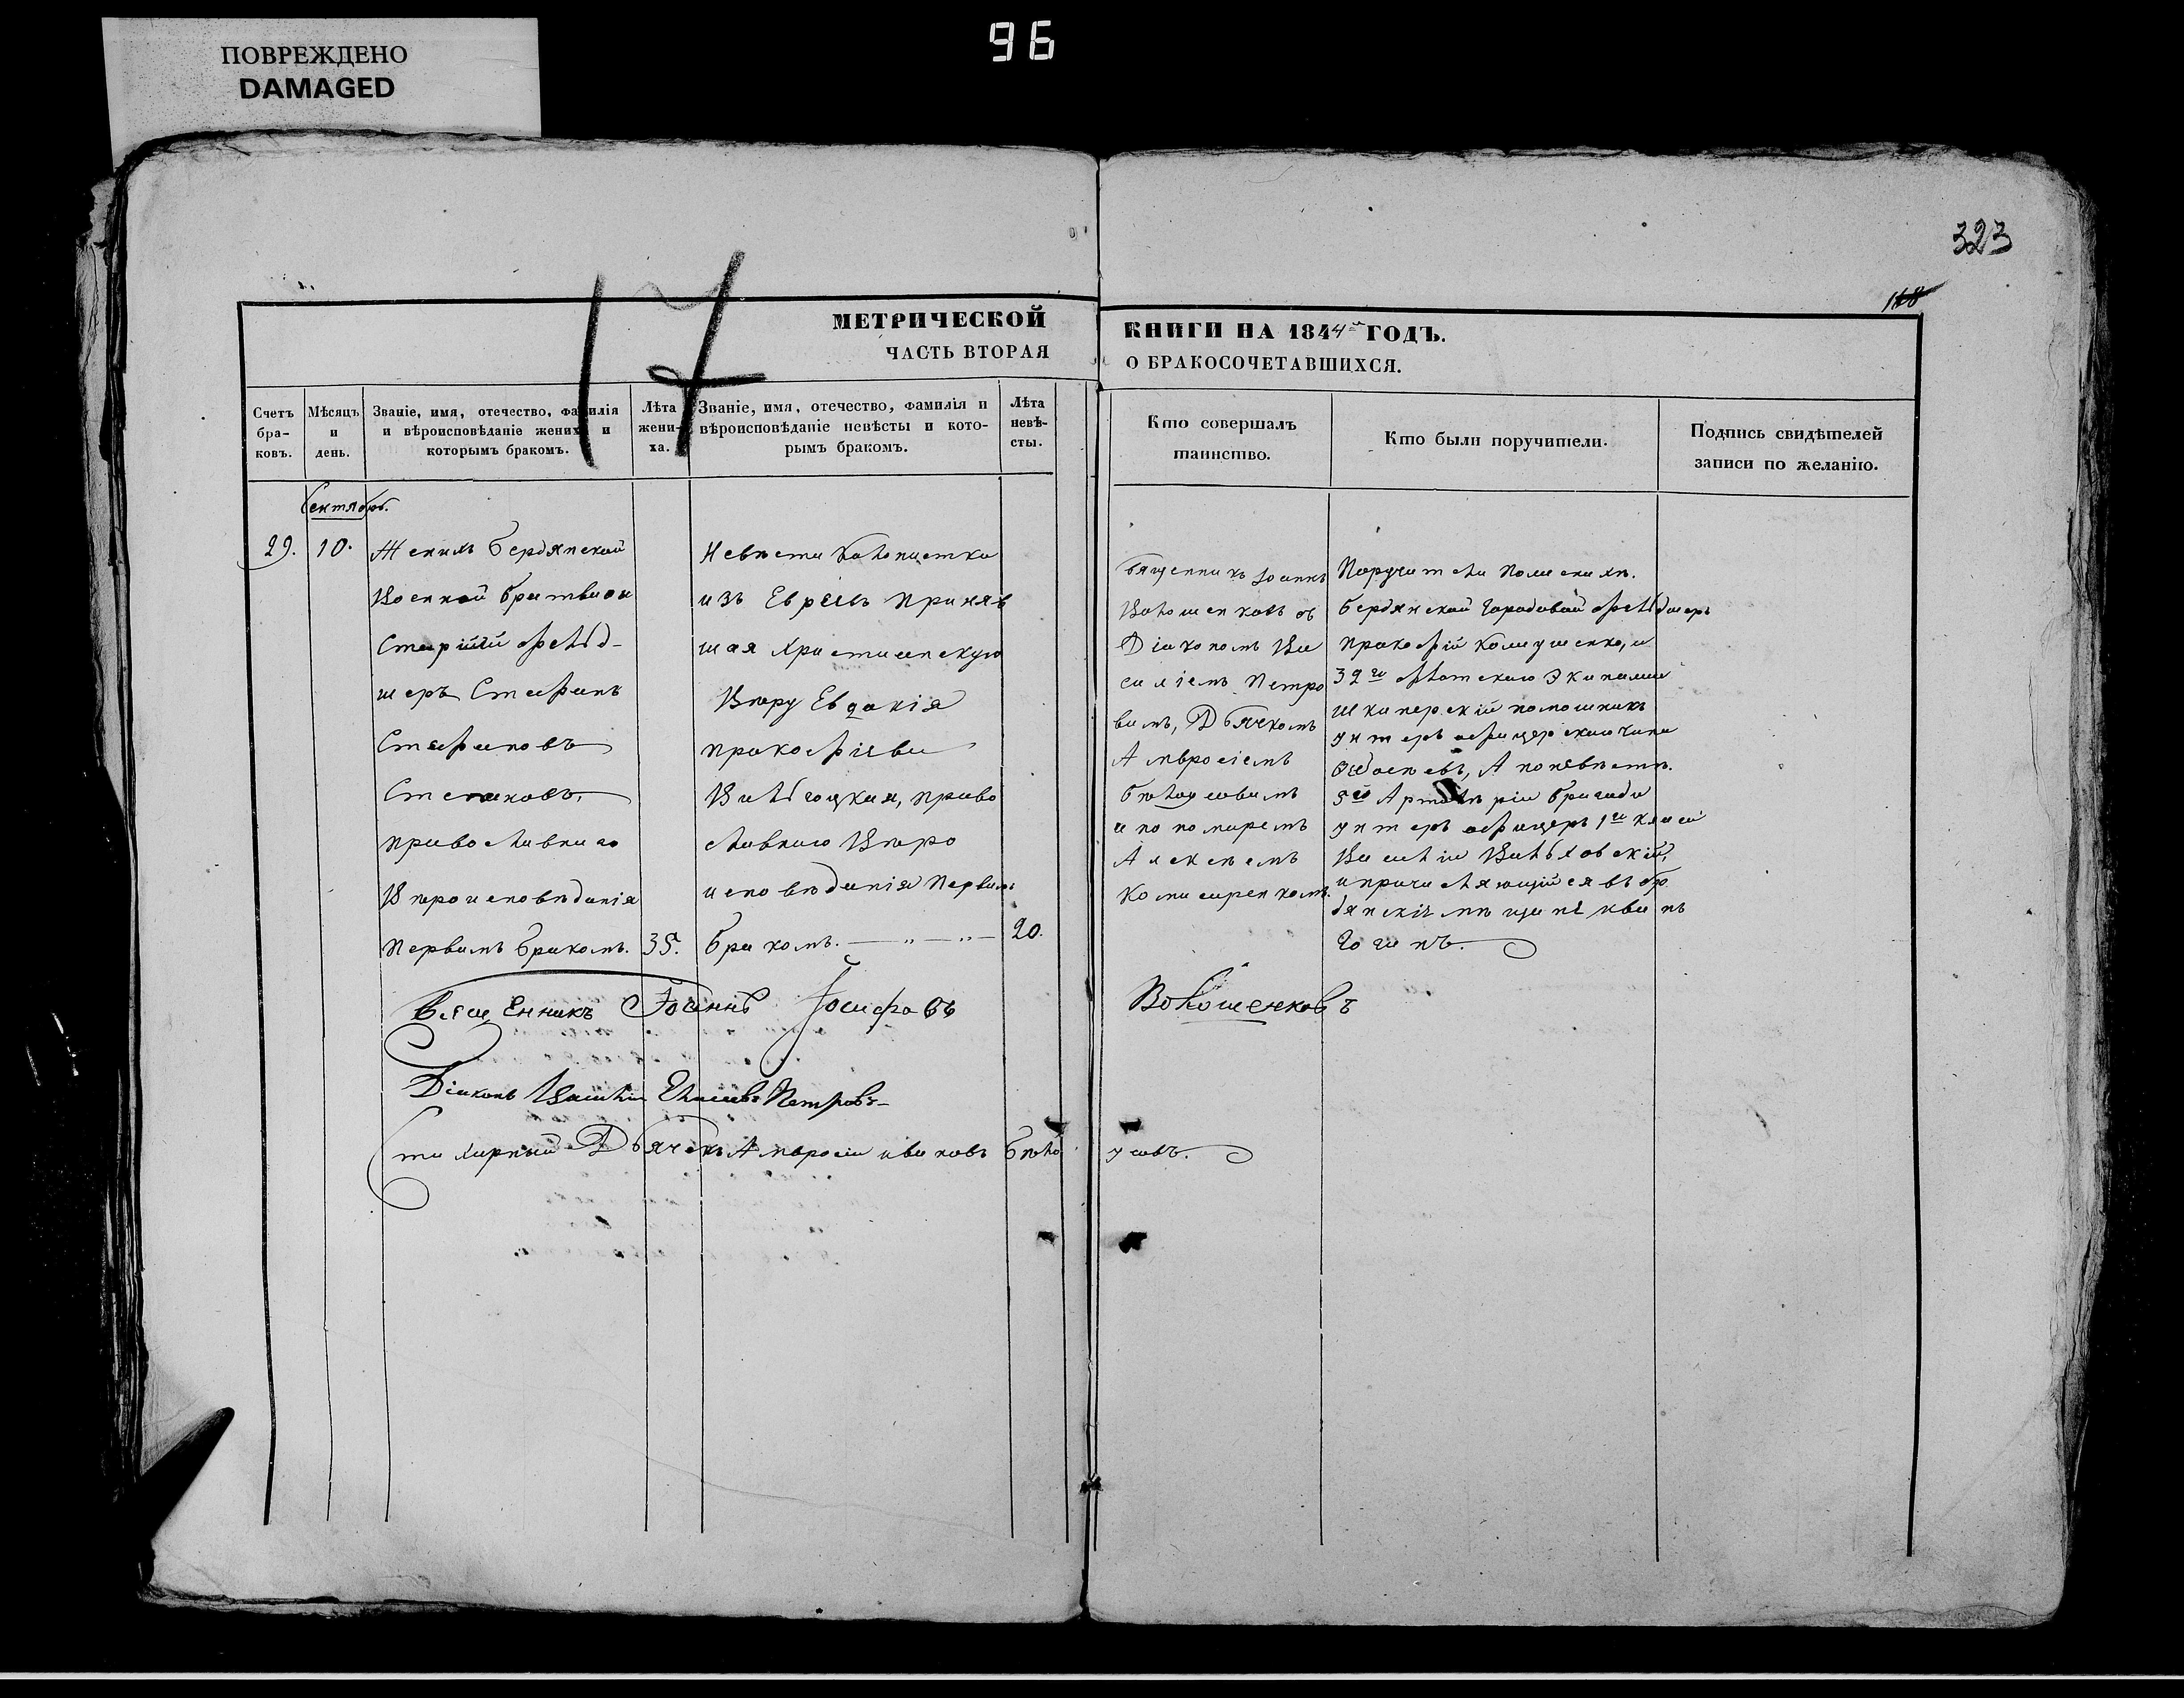 ПОВРЕЖДЕНО
DAMAGED
96
323
118
17
МЕТРИЧЕСКОЙ
ЧАСТЬ ВТОРАЯ
КНИГИ НА 1844й ГОДЪ.
О БРАКОСОЧЕТАВШИХСЯ.
Счетъ бра-ковъ.
Мѣсяцъ и день.
Званіе, имя, отечество, фамилія
и вѣроисповѣданіе жениха и
которымъ бракомъ.
Лѣта жени-ха.
Званіе, имя, отечество, фамилія и
вѣроисповѣданіе невѣсты и кото-
рымъ бракомъ.
Лѣта невѣ-сты.
Кто совершалъ
таинство.
Кто были поручители.
Подпись свидѣтелей
записи по желанію.
Сентябрь.
29. 10.
Женихъ Бердянской
Военной
Старшій фельд-
шеръ Стефанъ
Стефановъ
Степановъ,
православнаго
Вѣроисповѣданія
Первымъ бракомъ. 35.
Невѣста
изъ Евреевъ Приняв
шая Христианскую
Вѣру Евдокія
Прокофіева
Вильгоцкая, право
славнаго Вѣро
исповѣданія Первымъ
бракомъ. — „ — „ — 20.
Священникъ Іоаннъ
Волошенковъ съ
Діакономъ Ва
силіемъ Петро
вымъ, Дьячкомъ
Амвросіемъ
Бѣлоусовымъ
и пономаремъ
Алексѣемъ
Комисаренкомъ.
Поручители По женихѣ.
Бердянской Городовой фельдшеръ
Прокофій Коляушенко, и
32го флотскаго Экипажа
шкиперскій помошникъ
унтеръ офицерскаго чина
Федосѣевъ, А по невѣстѣ.
5й Артилеріи бригады
унтеръ офицеръ 1го класа
Василій Вильховскій,
и причисляющійся въ бер
дянскіе мѣщане Иванъ
Гогинъ.
Священникъ Іоаннъ Іосифовъ Волошенковъ
Діаконъ Василій Елисѣевъ Петровъ
Стихарный Дьячекъ Амвросій Ивановъ Бѣлоусовъ.